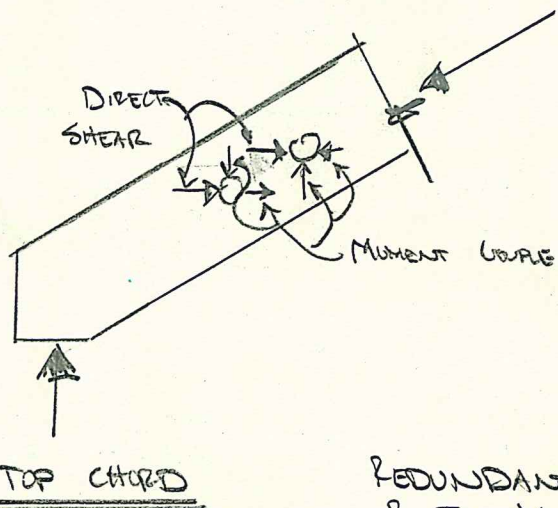 DIRECT
SHEAR
MOMENT COUPLE
TOP CHORD
REDUNDAN